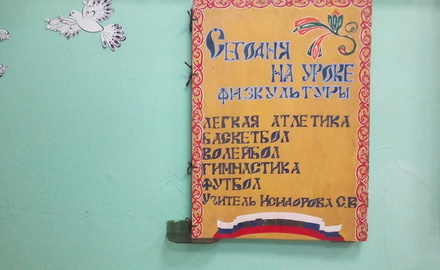 Сегодня
на уроке
физкультуры
Легкая атлетика
Баскетбол
Волейбол
Гимнастика
Футбол
Учитель Исидорова С.В